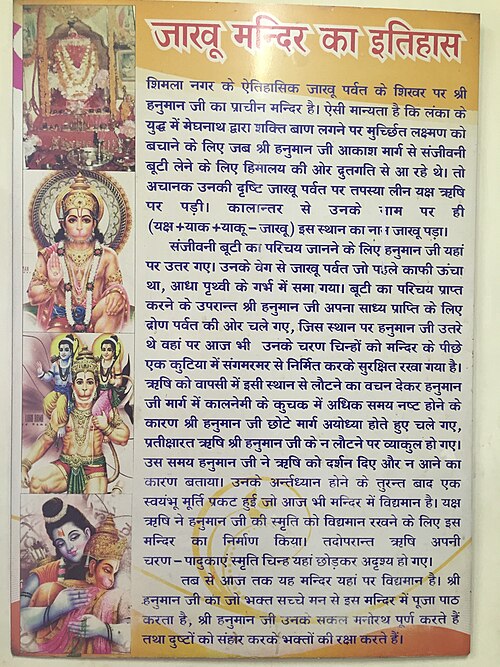 जाखू मन्दिर का इतिहास
शिमला नगर के ऐतिहासिक जाखू पर्वत के शिखर पर श्री
हनुमान जी का प्राचीन मन्दिर है। ऐसी मान्यता है कि लंका के
युद्ध में मेघनाथ द्वारा शक्ति बाण लगने पर मुर्च्छित लक्ष्मण को
बचाने के लिए जब श्री हनुमान जी आकाश मार्ग से संजीवनी
बूटी लेने के लिए हिमालय की ओर द्रुतगति से आ रहे थे। तो
अचानक उनकी दृष्टि जाखू पर्वत पर तपस्या लीन यक्ष ऋषि
पर पड़ी। कालान्तर से उनके नाम पर ही
(यक्ष+याक+याकू–जाखू) इस स्थान का नाम जाखू पड़ा।
संजीवनी बूटी का परिचय जानने के लिए हनुमान जी यहां
पर उतर गए। उनके वेग से जाखू पर्वत जो पहले काफी ऊंचा
था, आधा पृथ्वी के गर्भ में समा गया। बूटी का परिचय प्राप्त
करने के उपरान्त श्री हनुमान जी अपना साध्य प्राप्ति के लिए
द्रोण पर्वत की ओर चले गए, जिस स्थान पर हनुमान जी उतरे
थे वहां पर आज भी उनके चरण चिन्हों को मन्दिर के पीछे
एक कुटिया में संगमरमर से निर्मित करके सुरक्षित रखा गया है।
ऋषि को वापसी में इसी स्थान से लौटने का वचन देकर हनुमान
जी मार्ग में कालनेमी के कुचक में अधिक समय नष्ट होने के
कारण श्री हनुमान जी छोटे मार्ग अयोध्या होते हुए चले गए,
प्रतीक्षारत ऋषि श्री हनुमान जी के न लौटने पर व्याकुल हो गए।
उस समय हनुमान जी ने ऋषि को दर्शन दिए और न आने का
कारण बताया। उनके अर्न्तध्यान होने के तुरन्त बाद एक
स्वयंभू मूर्ति प्रकट हुई जो आज भी मन्दिर में विद्यमान है। यक्ष
ऋषि ने हनुमान जी की स्मृति को विद्यमान रखने के लिए इस
मन्दिर का निर्माण किया। तदोपरान्त ऋषि अपनी
चरण–पादुकाएं स्मृति चिन्ह यहां छोड़कर अदृश्य हो गए।
तब से आज तक यह मन्दिर यहां पर विद्यमान है। श्री
हनुमान जी का जो भक्त सच्चे मन से इस मन्दिर में पूजा पाठ
करता है, श्री हनुमान जी उनके सकल मनोरथ पूर्ण करते हैं
तथा दुष्टों को संहार करके भक्तों की रक्षा करते हैं।